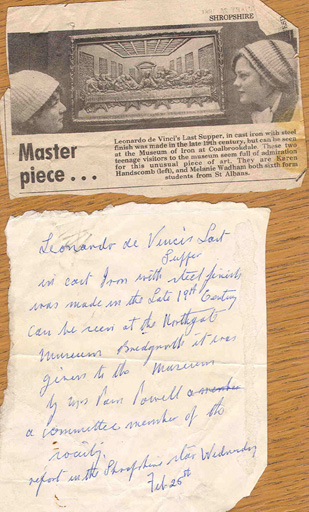 SHROPSHIRE
Master
piece . . .
Leonardo de Vinci's Last Supper, in cast iron with steel
finish was made in the late 19th century, but can be seen
at the Museum of Iron at Coalbrookdale. These two
teenage visitors to the museum seem full of admiration
for this unusual piece of art. They are Karen
Handscomb (left), and Melanie Wadham both sixth form
students from St Albans.
Leonardo de Vinci's Last
Supper
in cast Iron with steel finish
was made in the Late 19th Century
can be seen at the Northgate
Museum Bridgnorth it was
given to the Museum
by Mrs Pam Powell a member
a committee member of the
society.
report in the Shropshire star Wednesday
Feb 25th